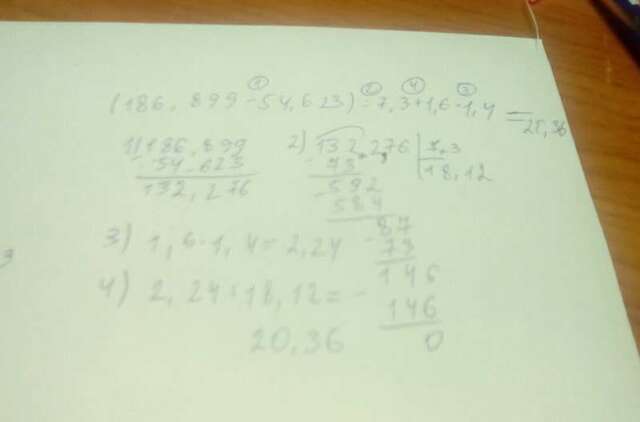 ① ② ④ ③
(186,899-54,623):7,3+1,6·1,4=20,36
1) 186,899
- 54,623
132,276
2) 132,276 | 7,3
- 73 | 18,12
592
- 584
87
- 73
146
- 146
0
3) 1,6·1,4=2,24
4) 2,24+18,12=
20,36